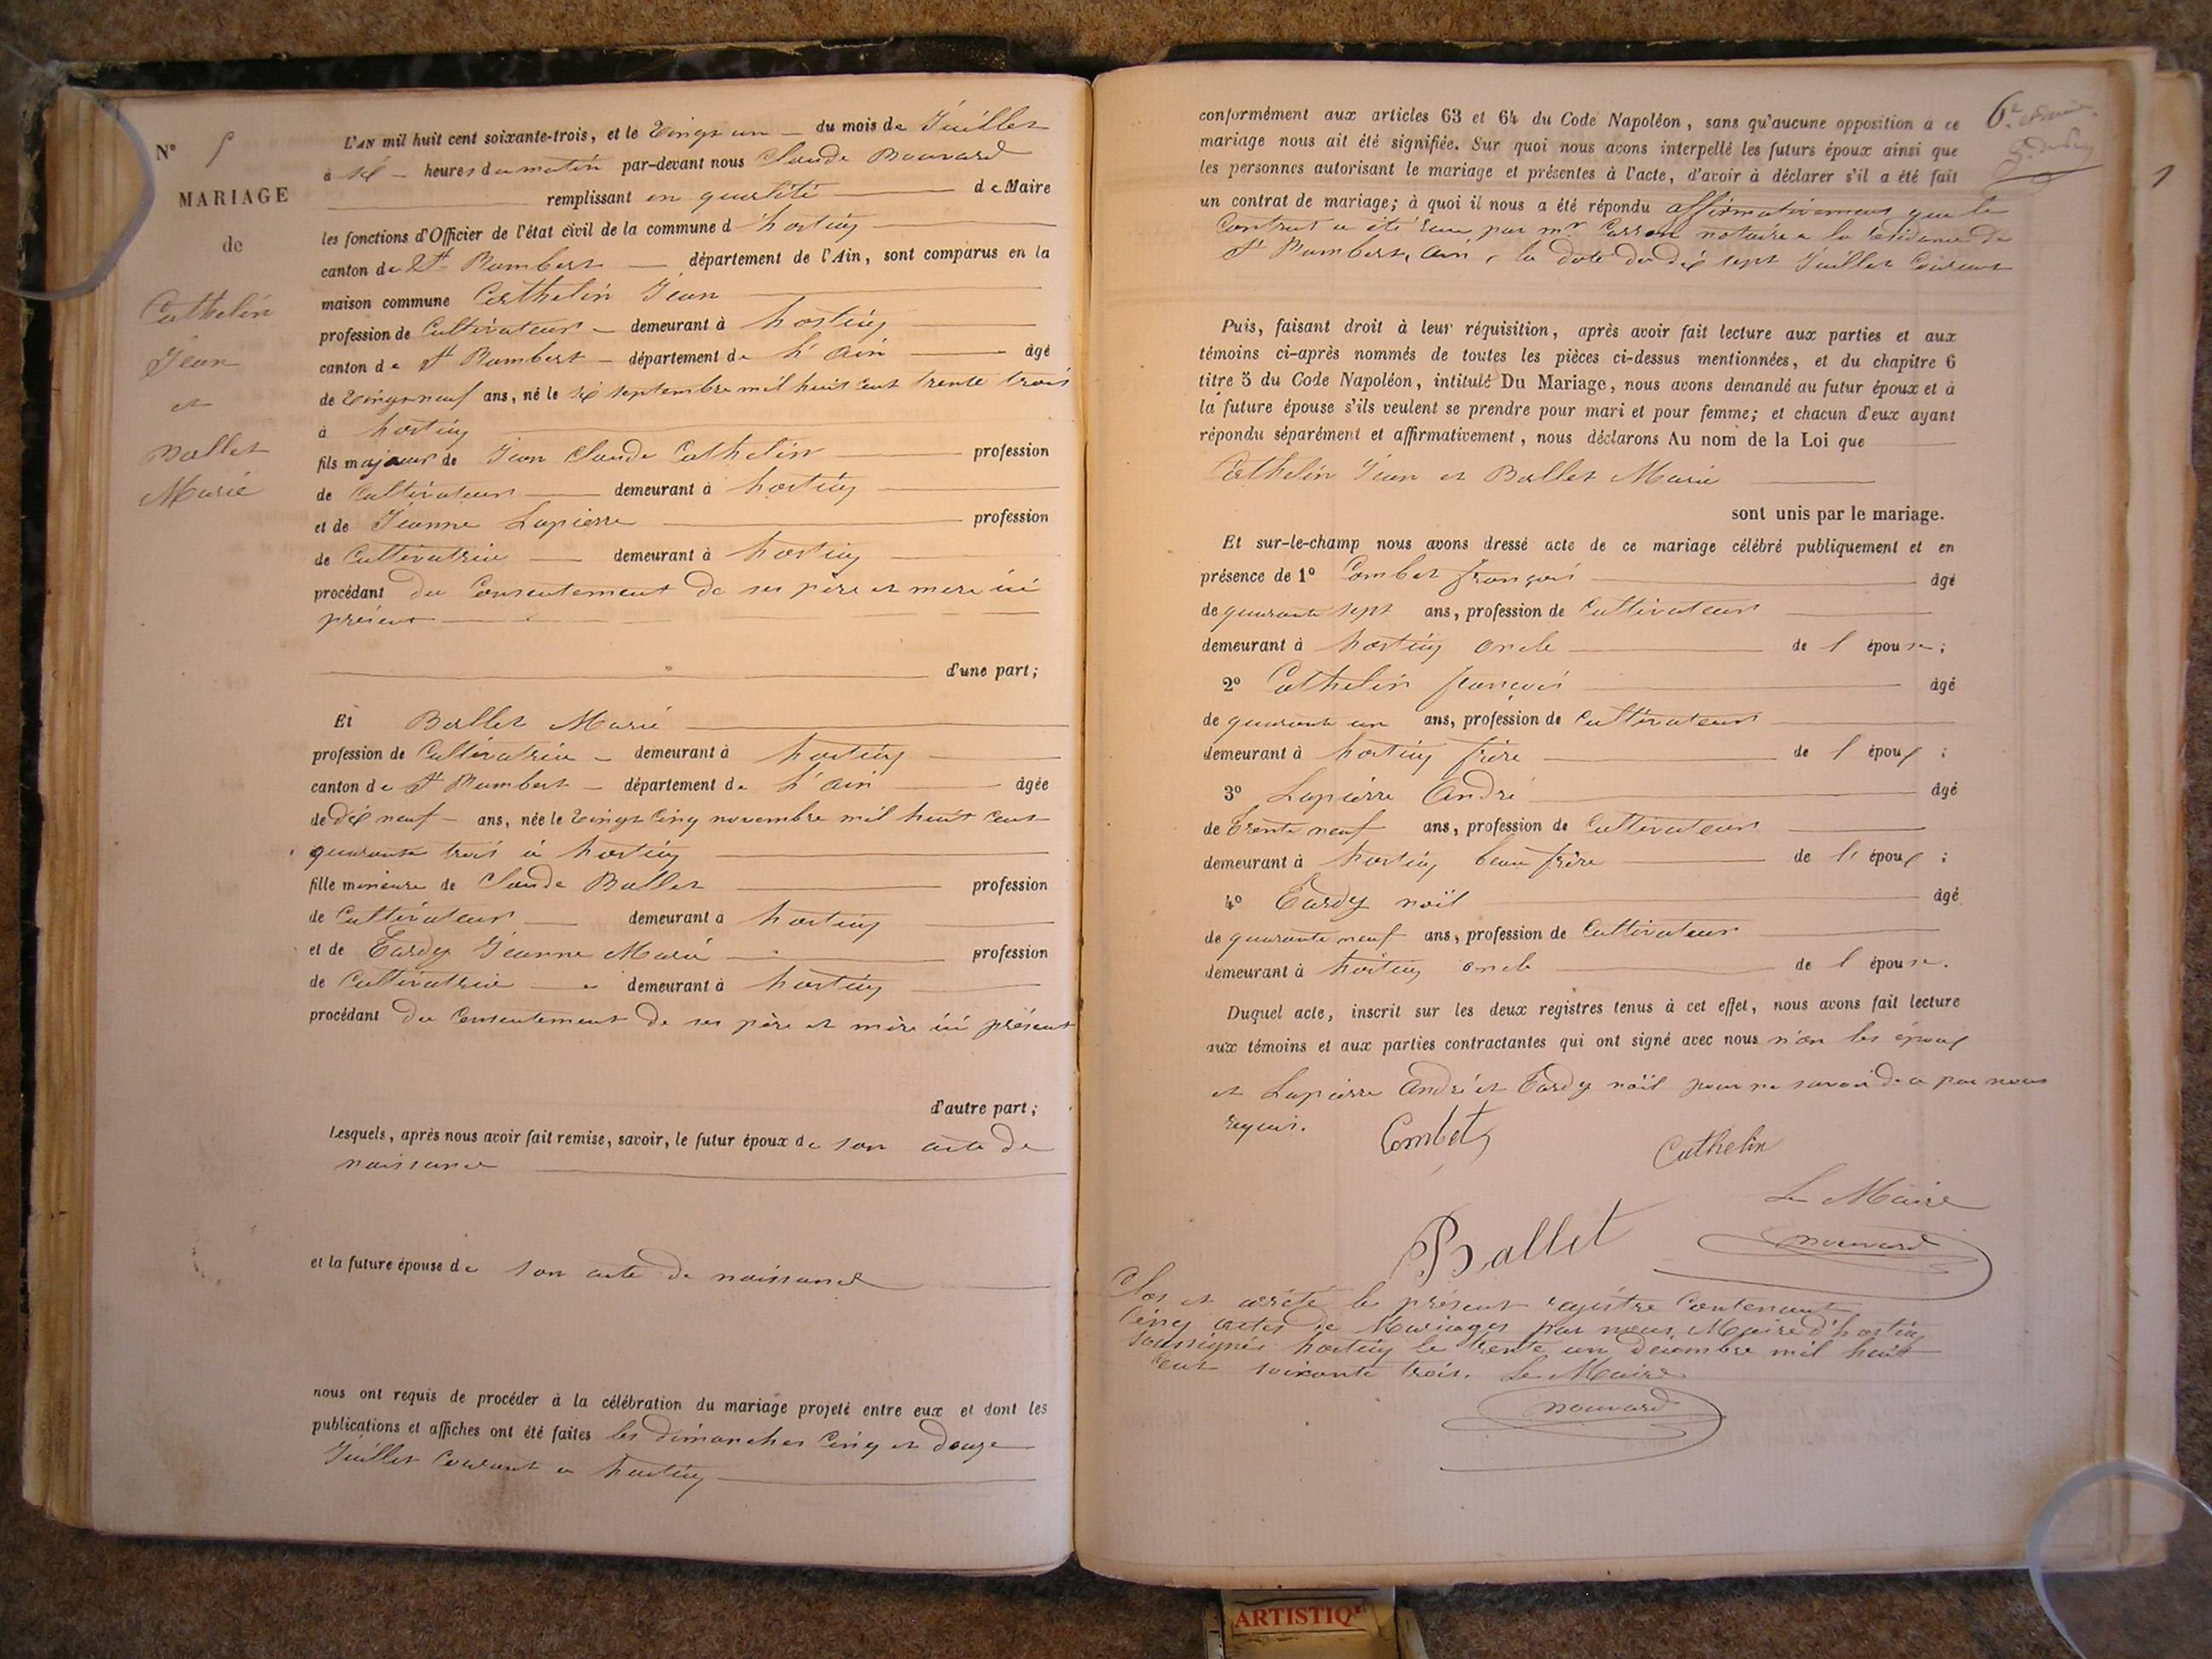 N° 5
MARIAGE
de
Cathelin
Jean
et
Ballet
Marie
L'AN mil huit cent soixante-trois, et le vingt un du mois de Juillet
à six heures du matin par-devant nous Claude Bouvard
remplissant en qualité de Maire
les fonctions d'Officier de l'état civil de la commune d'hostiaz
canton de St Rambert département de l'Ain, sont comparus en la
maison commune Cathelin Jean
profession de Cultivateur demeurant à hostiaz
canton de St Rambert département de L'ain âgé
de vingt neuf ans, né le six septembre mil huit cent trente trois
à hostiaz
fils majeur de Jean Claude Cathelin profession
de Cultivateur demeurant à hostiaz
et de Jeanne Lapierre profession
de Cultivatrice demeurant à hostiaz
procédant du Consentement de ses père et mère ici
présent
d'une part;
Et Ballet Marie
profession de Cultivatrice demeurant à hostiaz
canton de St Rambert département de L'ain âgée
de dix neuf ans, née le vingt cinq novembre mil huit cent
quarante trois à hostiaz
fille mineure de Claude Ballet profession
de Cultivateur demeurant à hostiaz
et de Tardy Jeanne Marie profession
de Cultivatrice demeurant à hostiaz
procédant du Consentement de ses père et mère ici présent
d'autre part;
Lesquels, après nous avoir fait remise, savoir, le futur époux de son acte de
naissance
et la future épouse de son acte de naissance
nous ont requis de procéder à la célébration du mariage projeté entre eux et dont les
publications et affiches ont été faites les dimanches Cinq et douze
Juillet Courant a hostiaz
6e et dernier
conformément aux articles 63 et 64 du Code Napoléon, sans qu'aucune opposition à ce
mariage nous ait été signifiée. Sur quoi nous avons interpellé les futurs époux ainsi que
les personnes autorisant le mariage et présentes à l'acte, d'avoir à déclarer s'il a été fait
un contrat de mariage; à quoi il nous a été répondu affirmativement que le
Contrat a été reçu par mr notaire a la résidence de
St Rambert, ain, la date du dix sept Juillet Courant
Puis, faisant droit à leur réquisition, après avoir fait lecture aux parties et aux
témoins ci-après nommés de toutes les pièces ci-dessus mentionnées, et du chapitre 6
titre 5 du Code Napoléon, intitulé Du Mariage, nous avons demandé au futur époux et à
la future épouse s'ils veulent se prendre pour mari et pour femme; et chacun d'eux ayant
répondu séparément et affirmativement, nous déclarons Au nom de la Loi que
Cathelin Jean et Ballet Marie
sont unis par le mariage.
Et sur-le-champ nous avons dressé acte de ce mariage célébré publiquement et en
présence de 1° Combet françois âgé
de quarante sept ans, profession de Cultivateur
demeurant à hostiaz oncle de l'épouse;
2° Cathelin françois âgé
de quarante un ans, profession de Cultivateur
demeurant à hostiaz frère de l'époux;
3° Lapierre André âgé
de trente neuf ans, profession de Cultivateur
demeurant à hostiaz beau frère de l'époux;
4° Tardy noël âgé
de quarante neuf ans, profession de Cultivateur
demeurant à hostiaz oncle de l'épouse.
Duquel acte, inscrit sur les deux registres tenus à cet effet, nous avons fait lecture
aux témoins et aux parties contractantes qui ont signé avec nous non les époux
et Lapierre André et Tardy noël pour ne savoir de ce par nous
requis.
Combet
Cathelin
Le Maire
Ballet
Bouvard
Clos et arrêté le présent registre Contenant
Cinq actes de Mariages par nous Maire d'hostiaz
soussigné hostiaz le trente un décembre mil huit
Cent soixante trois. Le Maire
Bouvard
ARTISTIQ